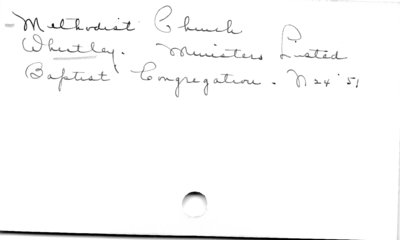 - Methodist Church
Wheatley. Ministers Listed
Baptist Congregation - N 24 '51